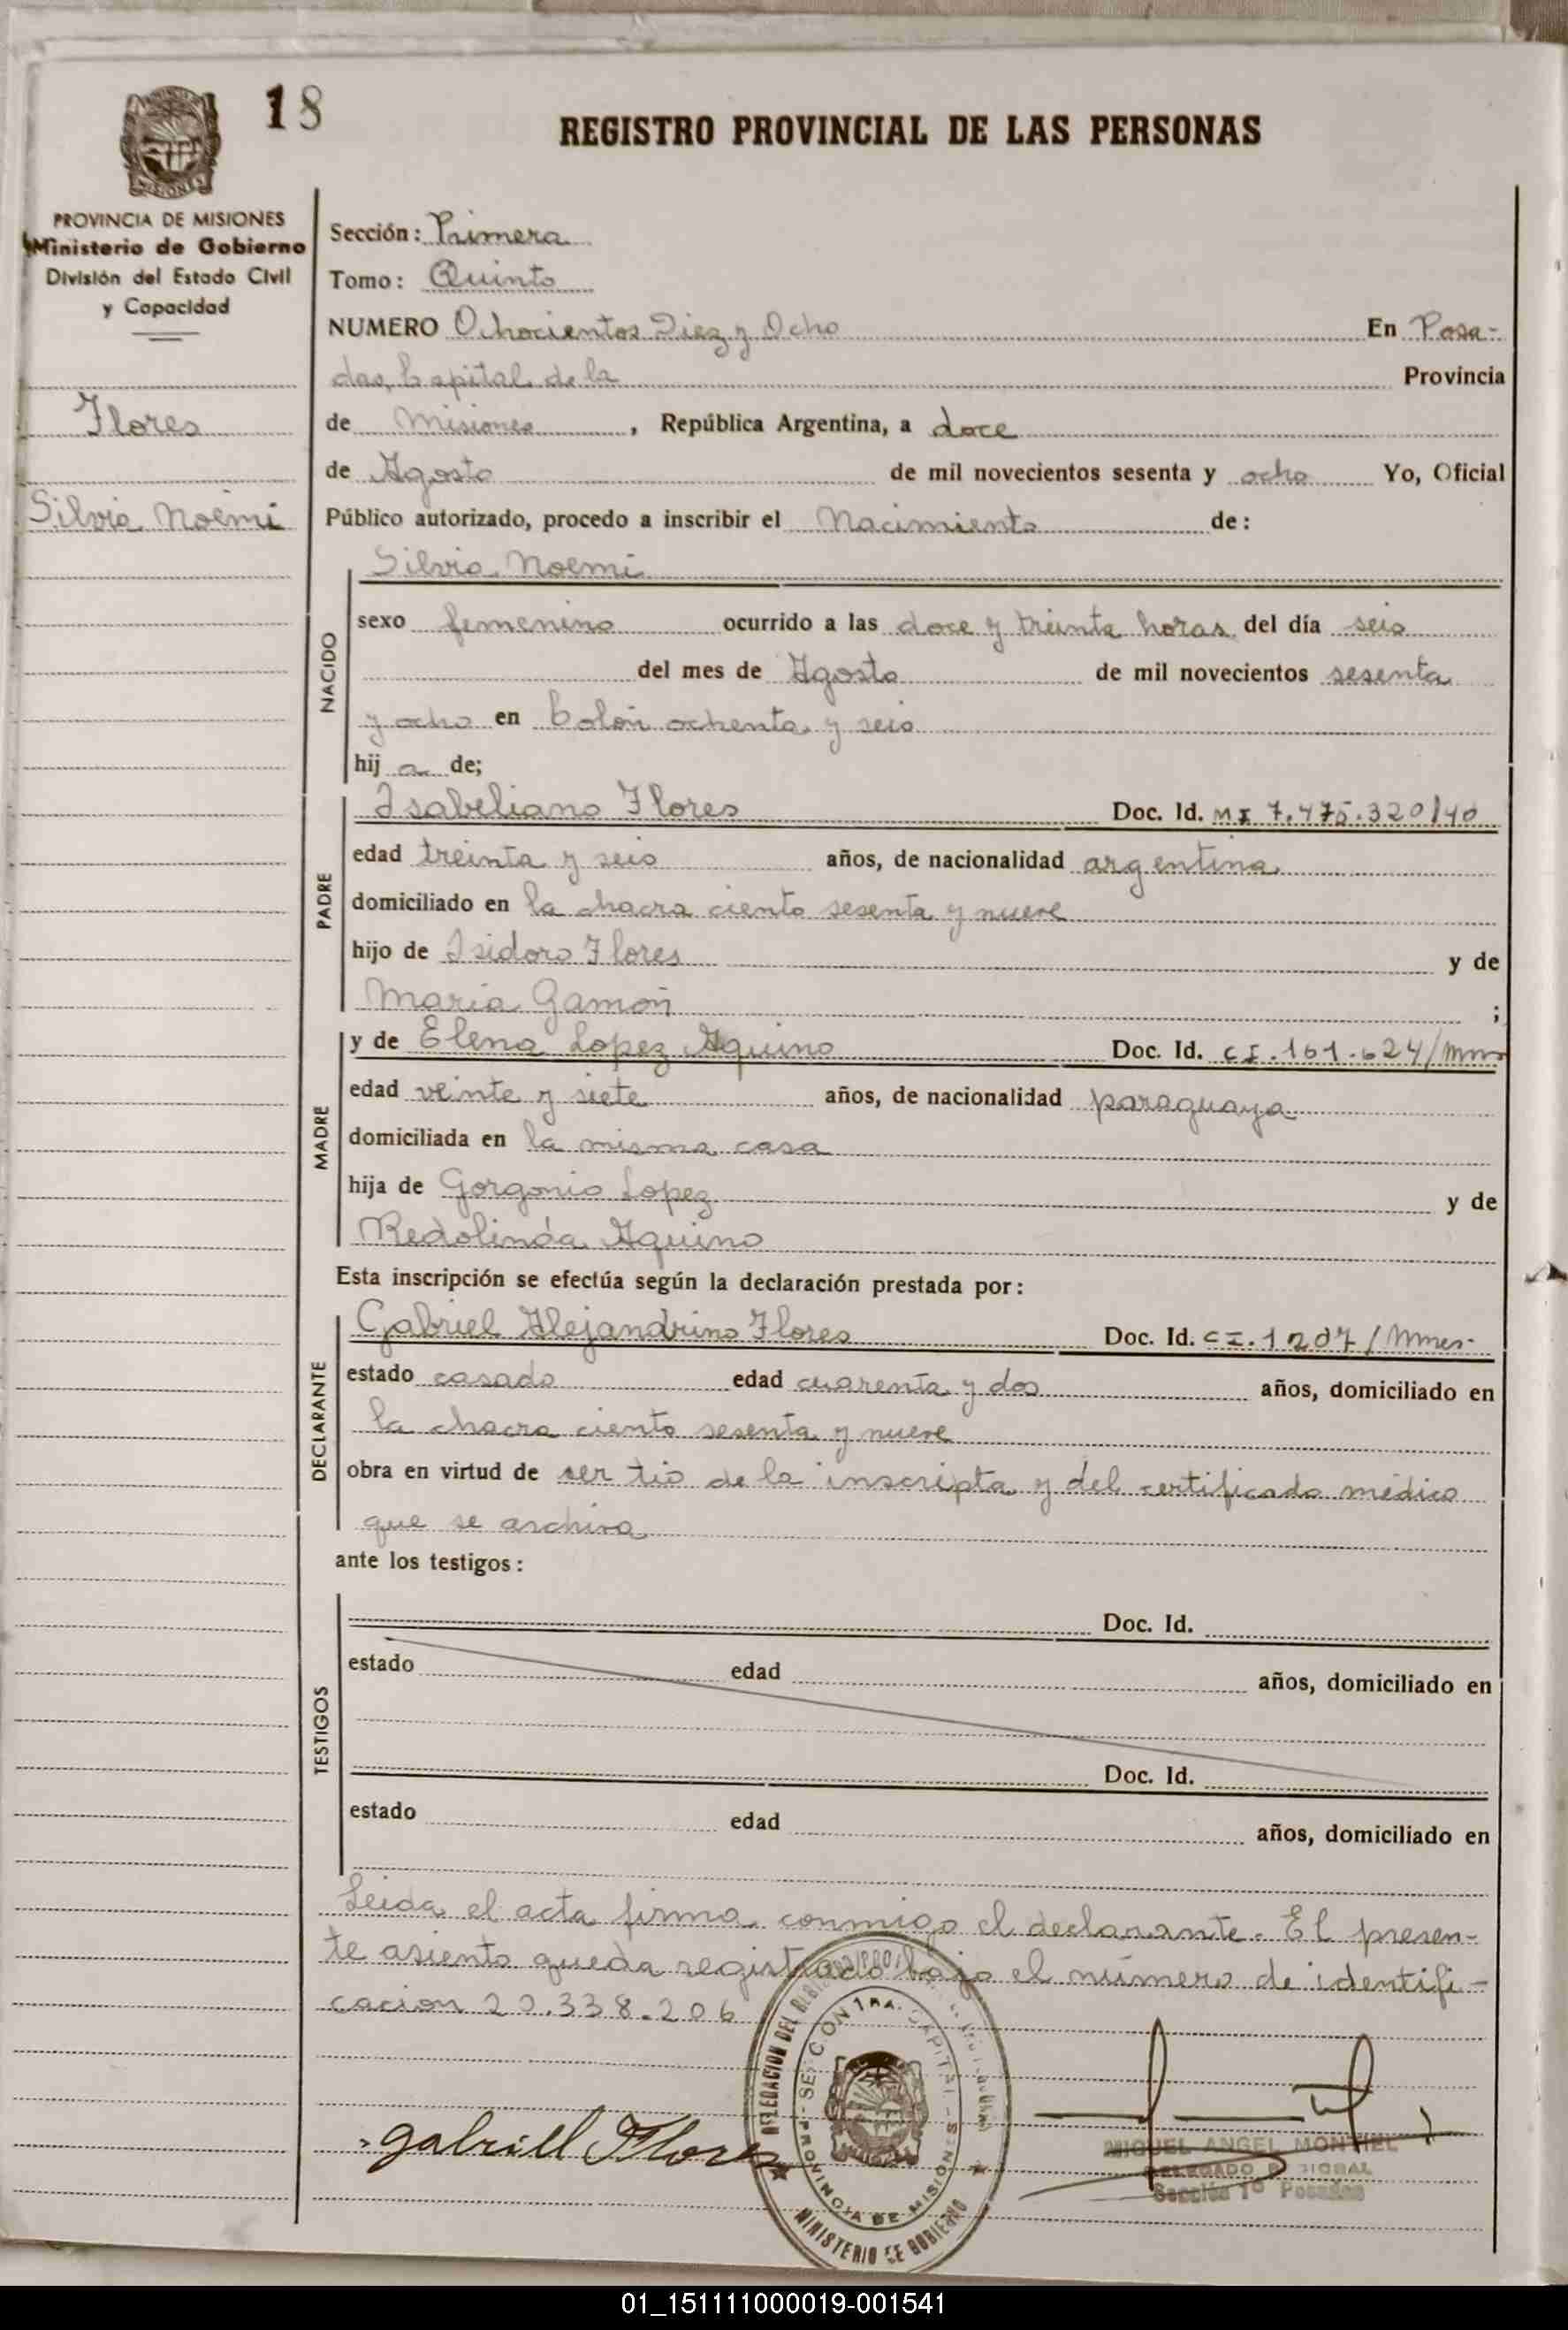 18
REGISTRO PROVINCIAL DE LAS PERSONAS
MISIONES
PROVINCIA DE MISIONES
Ministerio de Gobierno
División del Estado Civil
y Capacidad
Flores
Silvia Noemi
Sección: Primera
Tomo: Quinto
NUMERO Ochocientos Diez y Ocho En Posa-
das, Capital de la Provincia
de Misiones, República Argentina, a doce
de Agosto de mil novecientos sesenta y ocho Yo, Oficial
Público autorizado, procedo a inscribir el Nacimiento de:
Silvia Noemi
NACIDO
sexo femenino ocurrido a las doce y treinta horas del día seis
del mes de Agosto de mil novecientos sesenta
y ocho en Colón ochenta y seis
hij a de;
PADRE
Isabeliano Flores Doc. Id. MI 7.475.320/40
edad treinta y seis años, de nacionalidad argentina
domiciliado en la chacra ciento sesenta y nueve
hijo de Isidoro Flores y de
Maria Gamón ;
MADRE
y de Elena Lopez Aquino Doc. Id. CI.161.624/Mnes
edad veinte y siete años, de nacionalidad paraguaya
domiciliada en la misma casa
hija de Gorgonio Lopez y de
Redolinda Aquino
Esta inscripción se efectúa según la declaración prestada por:
DECLARANTE
Gabriel Alejandrino Flores Doc. Id. CI.1207/Mnes.
estado casado edad cuarenta y dos años, domiciliado en
la chacra ciento sesenta y nueve
obra en virtud de ser tio de la inscripta y del certificado médico
que se archiva
ante los testigos:
TESTIGOS
Doc. Id.
estado edad años, domiciliado en
Doc. Id.
estado edad años, domiciliado en
Leida el acta firma conmigo el declarante. El presen-
te asiento queda registrado bajo el número de identifi-
cacion 20.338.206
gabriell Flores
DELEGACION DEL
SECCION 1RA. CAPITAL
PROVINCIA DE MISIONES
MINISTERIO DE GOBIERNO
MIGUEL ANGEL MONTIEL
DELEGADO REGIONAL
Sección 1º Posadas
01_151111000019-001541